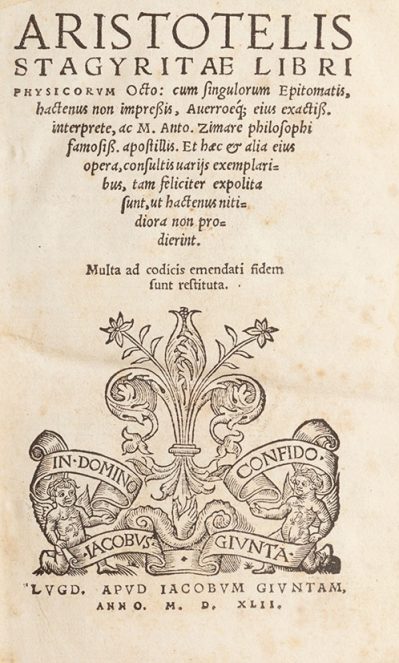 ARISTOTELIS
STAGYRITAE LIBRI
PHYSICORVM Octo: cum ſingulorum Epitomatis,
hactenus non impreßis, Auerroeq́; eius exactiß.
interprete, ac M. Anto. Zimare philoſophi
famoſiß. apoſtillis. Et hæc & alia eius
opera, conſultis uarijs exemplari=
bus, tam feliciter expolita
ſunt, ut hactenus niti=
diora non pro=
dierint.
Multa ad codicis emendati fidem
ſunt reſtituta.
IN·DOMINO
CONFIDO·
·IACOBVS·
GIVNTA·
LVGD. APVD IACOBVM GIVNTAM,
ANNO. M. D. XLII.